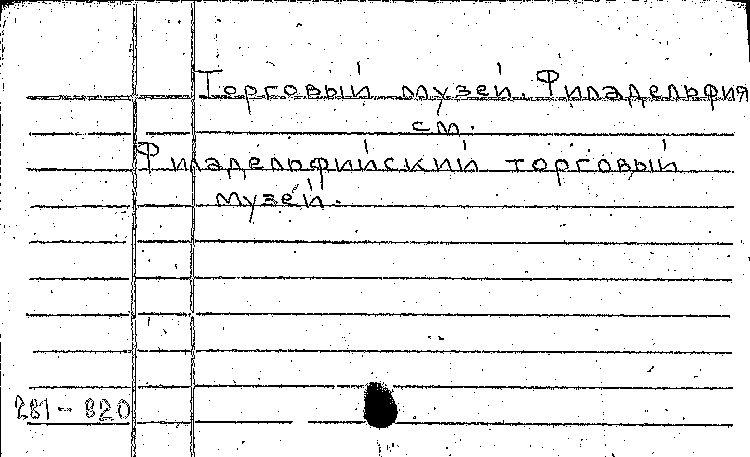 Торговый музей. Филадельфия
см.
Филадельфийский торговый
музей.
281-820